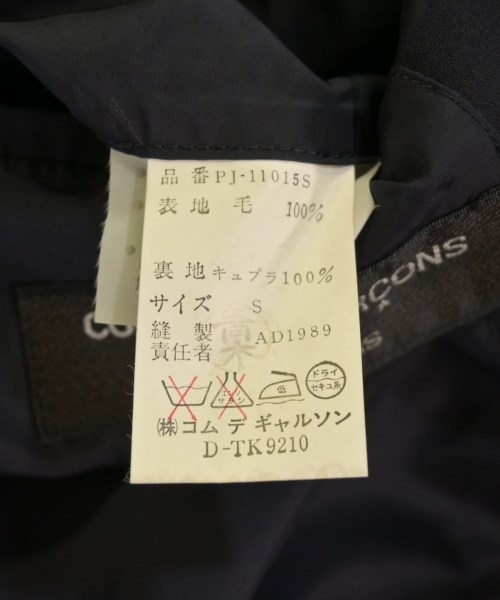 品番 PJ-11015S
表地 毛 100%
裏地 キュプラ 100%
サイズ S
縫製 AD1989
責任者
エンソ
サラシ
低
ドライ
セキユ系
㈱コム デ ギャルソン
D-TK9210
CO
RCONS